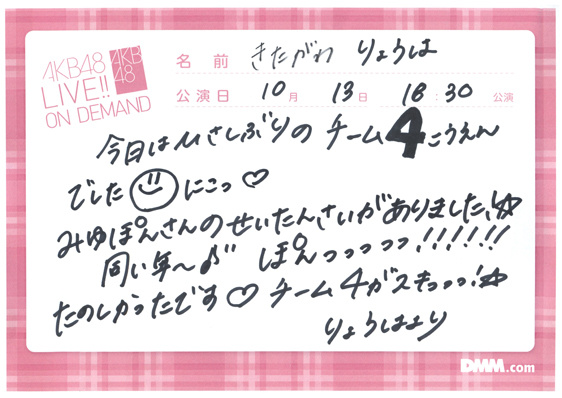 AKB48
LIVE!!
ON DEMAND
AKB
48
名前 きたがわ りょうは
公演日 10月 13日 18:30 公演
今日はひさしぶりのチーム4こうえん
でした にこっ♡
みゆぽんさんのせいたんさいがありました!☆
同い年〜♪ ぽんっっっっっ!!!!!!
たのしかったです♡ チーム4がスキっっっ!☆
りょうはより
DMM.com